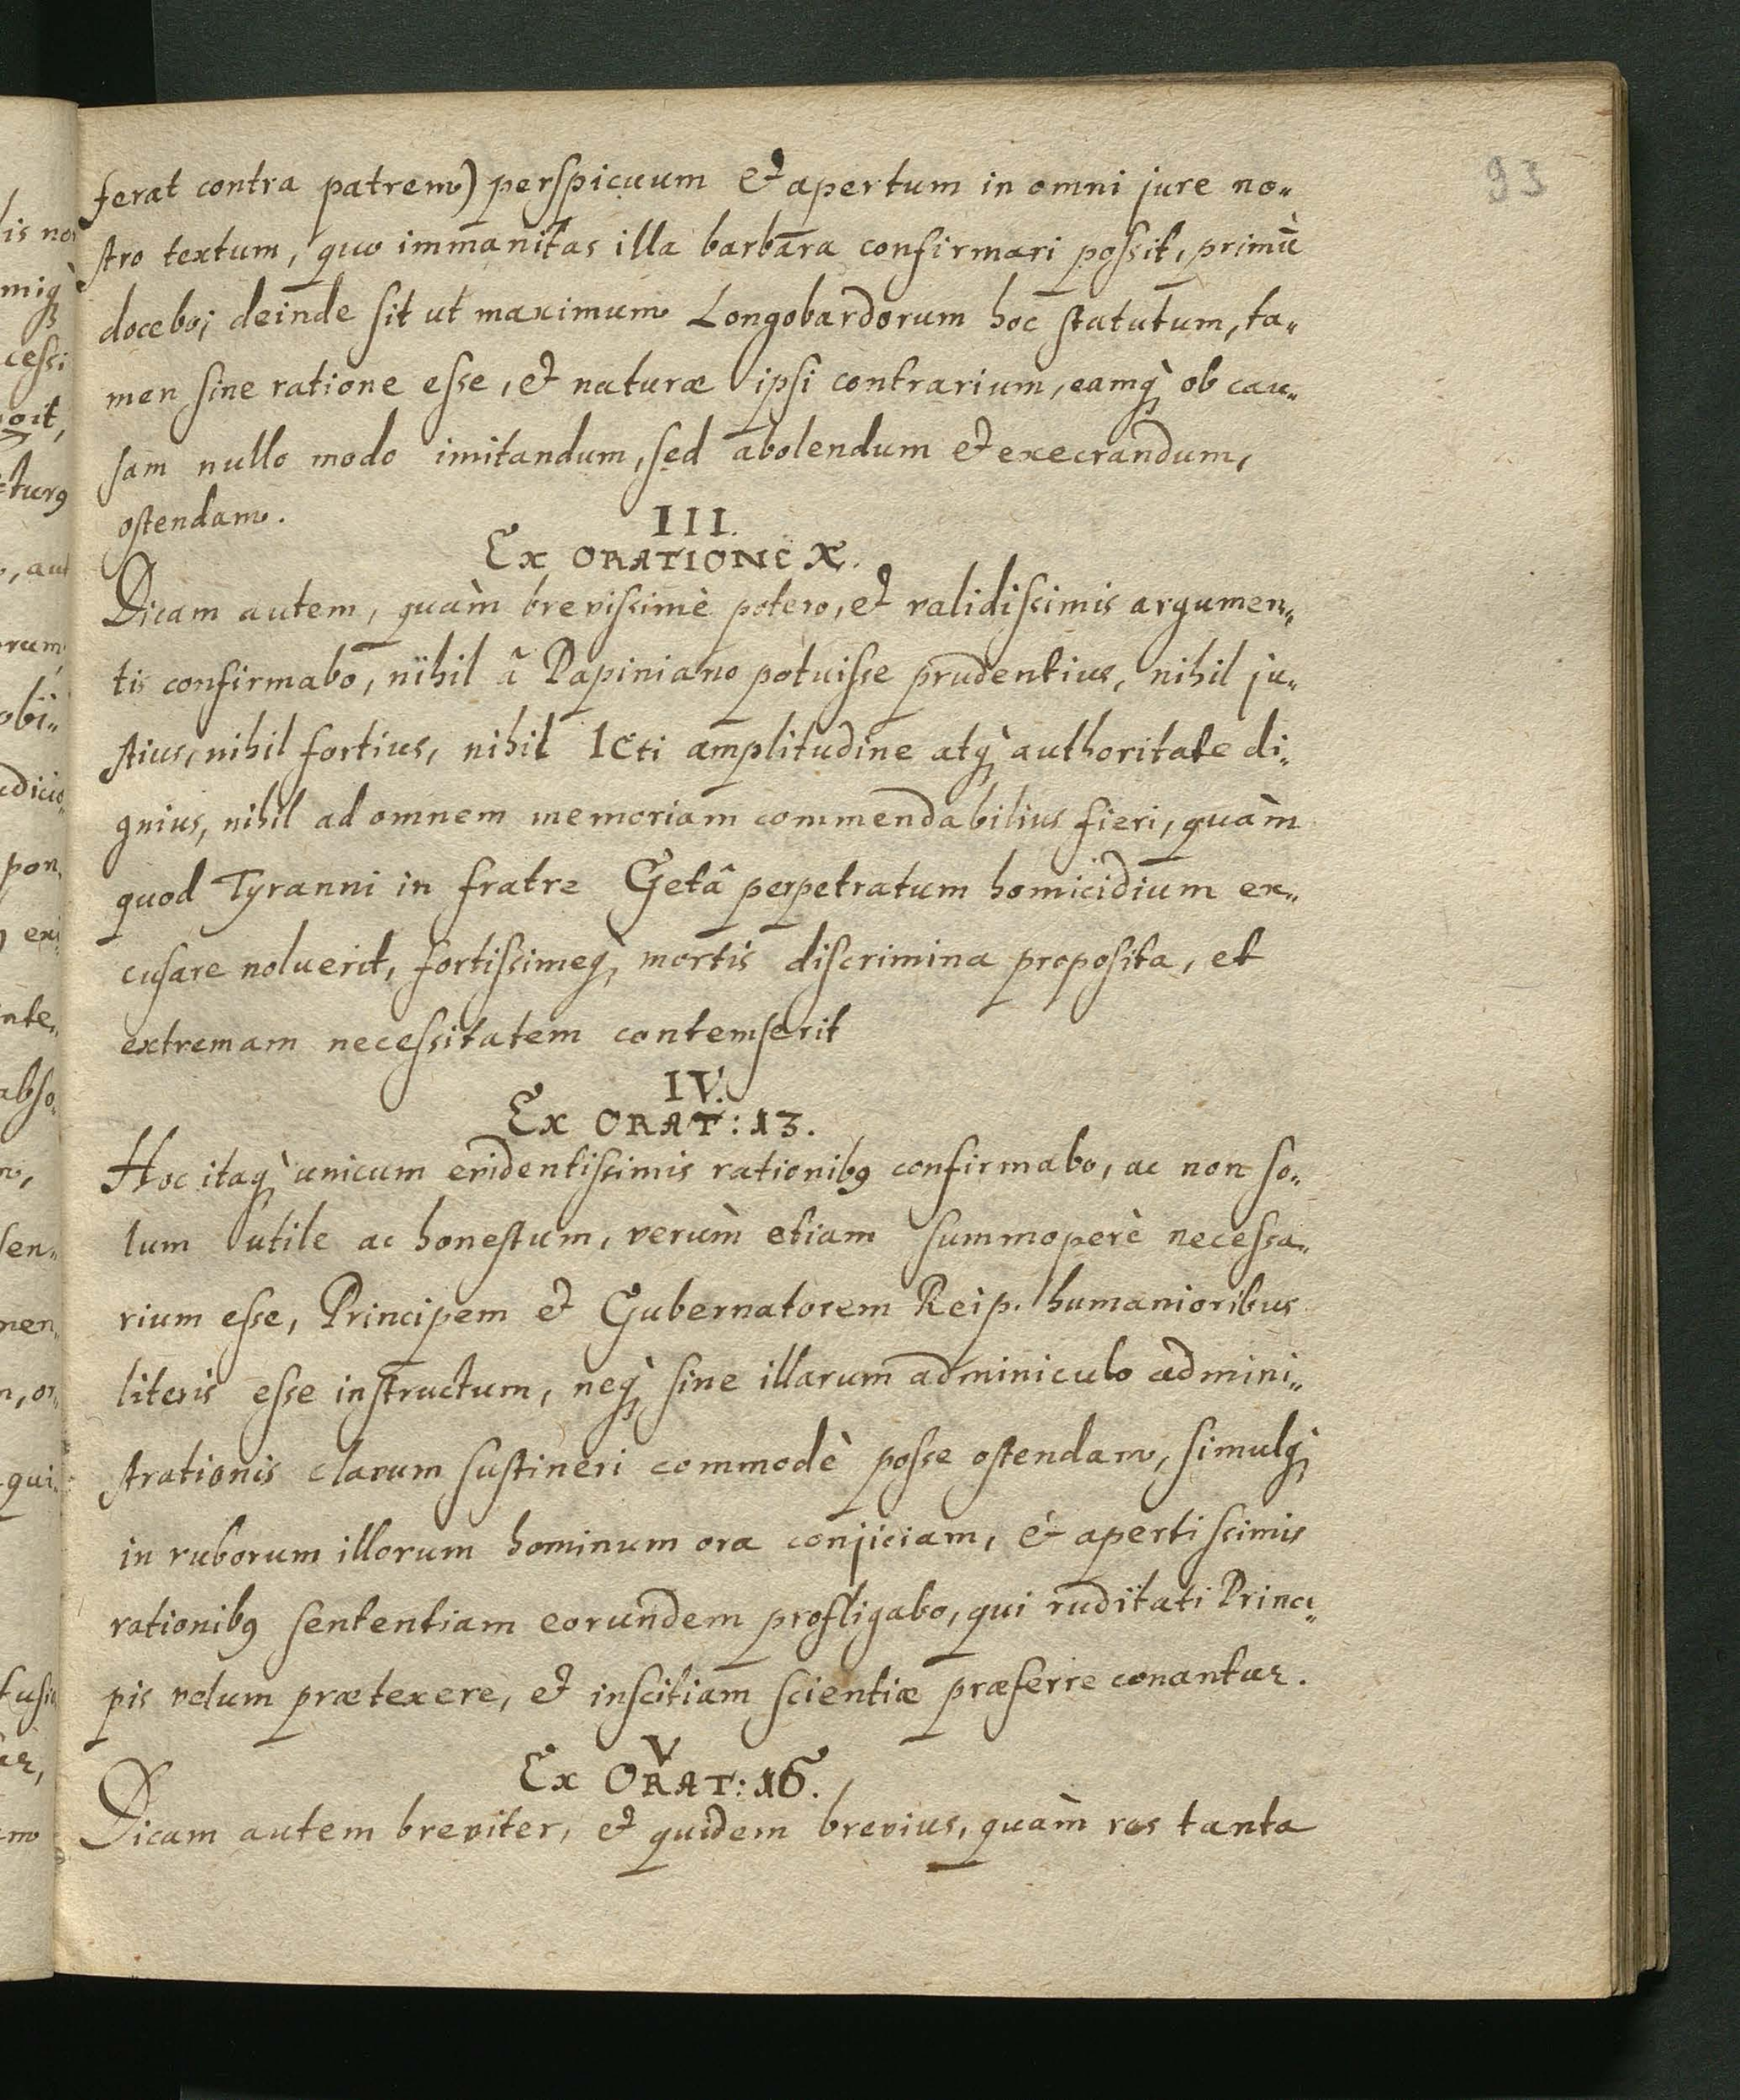 93
ferat contra patrem) perspicuum et apertum in omni jure no-
stro textum, quo immanitas illa barbara confirmari possit, primū
docebo; deinde sit ut maximum Longobardorum hoc statutum, ta-
men sine ratione esse, et naturæ ipsi contrarium, eamq̀ ob cau-
sam nullo modo imitandum, sed abolendum et execrandum,
ostendam.
III.
Ex ORATIONE X.
Dicam autem, quàm brevissimè potero, et validissimis argumen-
tis confirmabo, nihil â Papiniano potuisse prudentius, nihil ju-
stius, nihil fortius, nihil ICti amplitudine atq̀ authoritate di-
gnius, nihil ad omnem memoriam commendabilius fieri, quàm
quod Tyranni in fratre Getâ perpetratum homicidium ex-
cusare noluerit, fortissimeq̀ mortis discrimina proposita, et
extremam necessitatem contemserit
IV.
Ex ORAT: 13.
Hoc itaq̀ unicum evidentissimis rationibꝰ confirmabo, ac non so-
lum utile ac honestum, verùm etiam summoperè necessa-
rium esse, Principem et Gubernatorem Reip. humanioribus
literis esse instructum, neq̀ sine illarum adminiculo admini-
strationis clavum sustineri commodè posse ostendam, simulq̀
in ruborum illorum hominum ora conjiciam, et apertissimis
rationibꝰ sententiam eorundem profligabo, qui ruditati Princi-
pis velum prætexere, et inscitiam scientiæ præferre conantur.
V
Ex ORAT: 16.
Dicam autem breviter, et quidem brevius, quàm res tanta